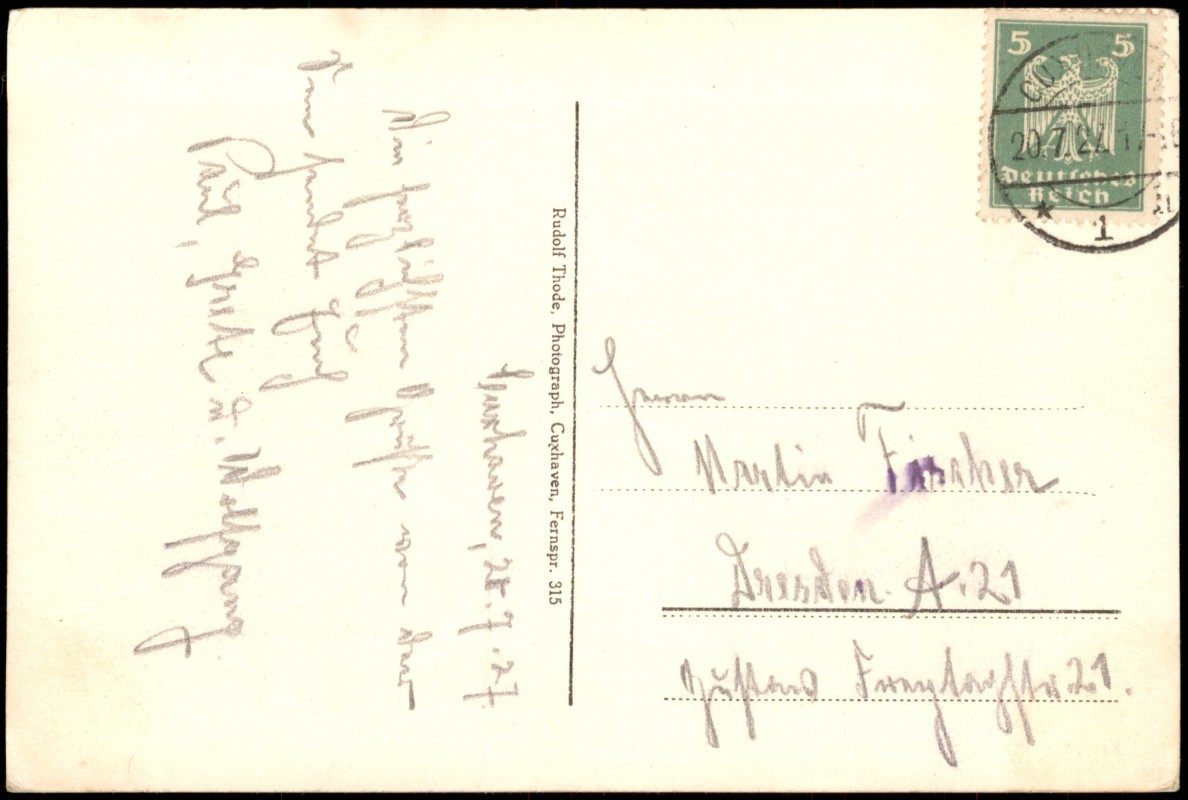 Cuxhaven, 20.7.27
Die herzlichsten Grüße von der
See sendet Euch
Paul, Grete u. Wolfgang
Rudolf Thode, Photograph, Cuxhaven, Fernspr. 315
5 5
20.7.27
Deutsches
Reich
1
Herrn
Martin Fischer
Dresden-A. 21
Gustav Freytagstr 21.